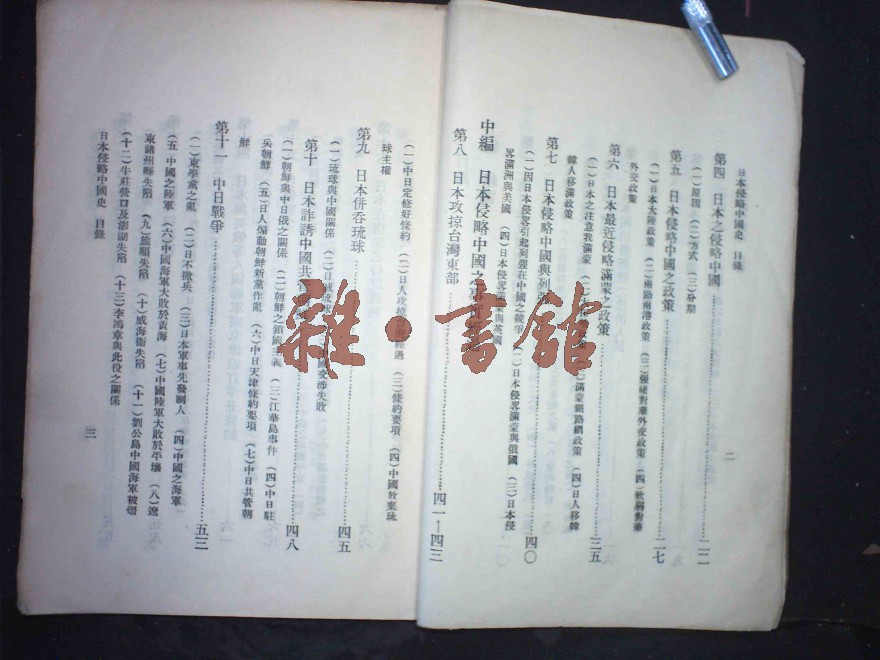 日本侵略中國史 目錄
二
第四 日本之侵略中國……二二
(一)原因 (二)方式 (三)分期
第五 日本侵略中國之政策……二七
(一)日本大陸政策 (二)兩路兩港政策 (三)強硬對華外交政策 (四)軟弱對華
外交政策
第六 日本最近侵略滿蒙之政策……三五
(一)日本之注意我滿蒙 滿蒙鐵路網政策 (四)日人移韓
韓人移滿政策
第七 日本侵略中國與列……四〇
(一)因日本侵畧引起列強在中國之競爭 (二)日本侵畧滿蒙與俄國 (三)日本侵
畧滿洲與美國 (四)日本侵畧 與英國
中編 日本侵略中國之
第八 日本攻掠台灣東部……四一-四三
(一)中日定修好條約 (二)日人攻掠 經過 (三)條約要項 (四)中國放棄琉
球主權
第九 日本併吞琉球……四五
(一)琉球與中國關係 (二)日 國交涉失敗
第十 日本詐誘中國共……四八
(一)朝鮮與中日俄之關係 (二)朝鮮之鎖國主義 (三)江華島事件 (四)中日駐
兵朝鮮 (五)日人煽動朝鮮新黨作亂 (六)中日天津條約要項 (七)中日共管朝
鮮
第十一 中日戰爭……五三
(一)東學黨之亂 (二)日不撤兵 (三)日本軍事先發制人 (四)中國之海軍
(五)中國之陸軍 (六)中國海軍大敗於黃海 (七)中國陸軍大敗於平壤 (八)遼
東諸州縣失陷 (九)旅順失陷 (十)威海衞失陷 (十一)劉公島中國海軍被燬
(十二)牛莊營口及澎湖失陷 (十三)李鴻章與此役之關係
日本侵略中國史 目錄
三
雜·書館